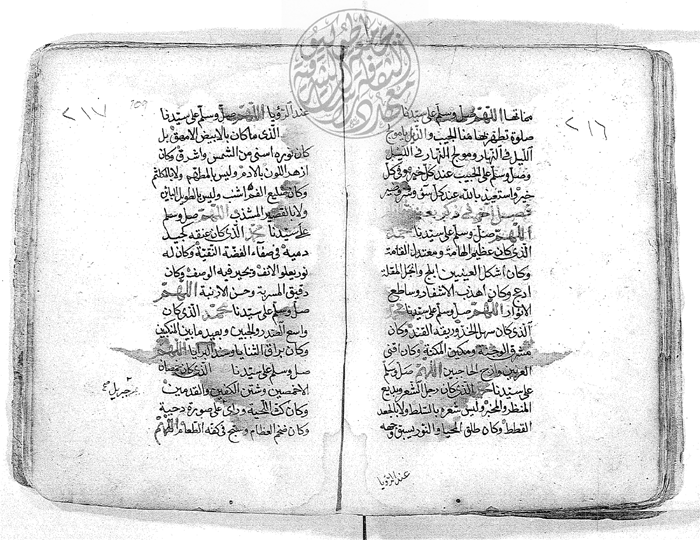 ٢١٦
اللهم صل وسلم على سيدنا
صلوة تطهر بها منا الجيب والذيل يا مولج
الليل في النهار ومولج النهار في الليل
وصل وسلم على الحبيب عند كل
خير واستعيذ بالله عند كل سوء
فصل
اللهم صل وسلم على سيدنا محمد
الذي كان عظيم الهامة ومعتدل القامة
وكان اشكل العينين ابلج وانجل المقلة
ادعج وكان اهدب الاشفار وساطع
الانوار اللهم صل وسلم على سيدنا محمد
الذي كان سهل الخد وريقه القند وكان
مشرق الوجنة وكان اقنى
العرنين وازج الحاجبين اللهم صل وسلم
على سيدنا محمد الذي كان رجل الشعر وبديع
المنظر والمخبر وليس شعره بالسبط ولا بالجعد
القطط وكان طلق المحيا والنور يسبق وجهه
عند الرؤيا
٢١٧
عند الرؤيا اللهم صل وسلم على سيدنا
الذي ما كان بالابيض الامهق بل
كان نوره اسنى من الشمس واشرق وكان
ازهر اللون بالادم وليس بالمطهم ولا بالمكلثم
وكان ضليع الفم اشنب وليس بالطويل البائن
ولا بالقصير المشذب اللهم صل وسلم
على سيدنا محمد الذي كان عنقه كجيد
دمية في صفاء الفضة النقية وكان له
نور يعلو الانف ويحير فيه الوصف وكان
دقيق المسربة وحسن الارنبة اللهم
صل وسلم على سيدنا محمد الذي كان
واسع الصدر والجبين وبعيد ما بين المنكبين
وكان براق الثنايا وسيد البرايا اللهم
صل وسلم على سيدنا الذي كان خمصان
الاخمصين وشثن الكفين والقدمين
وكان كث اللحية وراى على صورة دحية
جبريل صح
وكان ضخم العظام وسبح في كفه الطعام اللهم